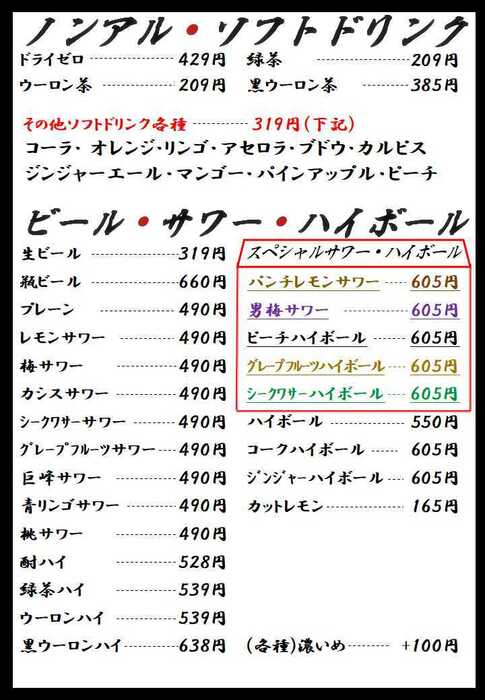 ノンアル・ソフトドリンク
ドライゼロ 429円
ウーロン茶 209円
緑茶 209円
黒ウーロン茶 385円
その他ソフトドリンク各種 319円(下記)
コーラ・オレンジ・リンゴ・アセロラ・ブドウ・カルピス
ジンジャーエール・マンゴー・パインアップル・ピーチ
ビール・サワー・ハイボール
生ビール 319円
瓶ビール 660円
プレーン 490円
レモンサワー 490円
梅サワー 490円
カシスサワー 490円
シークワサーサワー 490円
グレープフルーツサワー 490円
巨峰サワー 490円
青リンゴサワー 490円
桃サワー 490円
酎ハイ 528円
緑茶ハイ 539円
ウーロンハイ 539円
黒ウーロンハイ 638円
スペシャルサワー・ハイボール
パンチレモンサワー 605円
男梅サワー 605円
ピーチハイボール 605円
グレープフルーツハイボール 605円
シークワサーハイボール 605円
ハイボール 550円
コークハイボール 605円
ジンジャーハイボール 605円
カットレモン 165円
(各種)濃いめ +100円